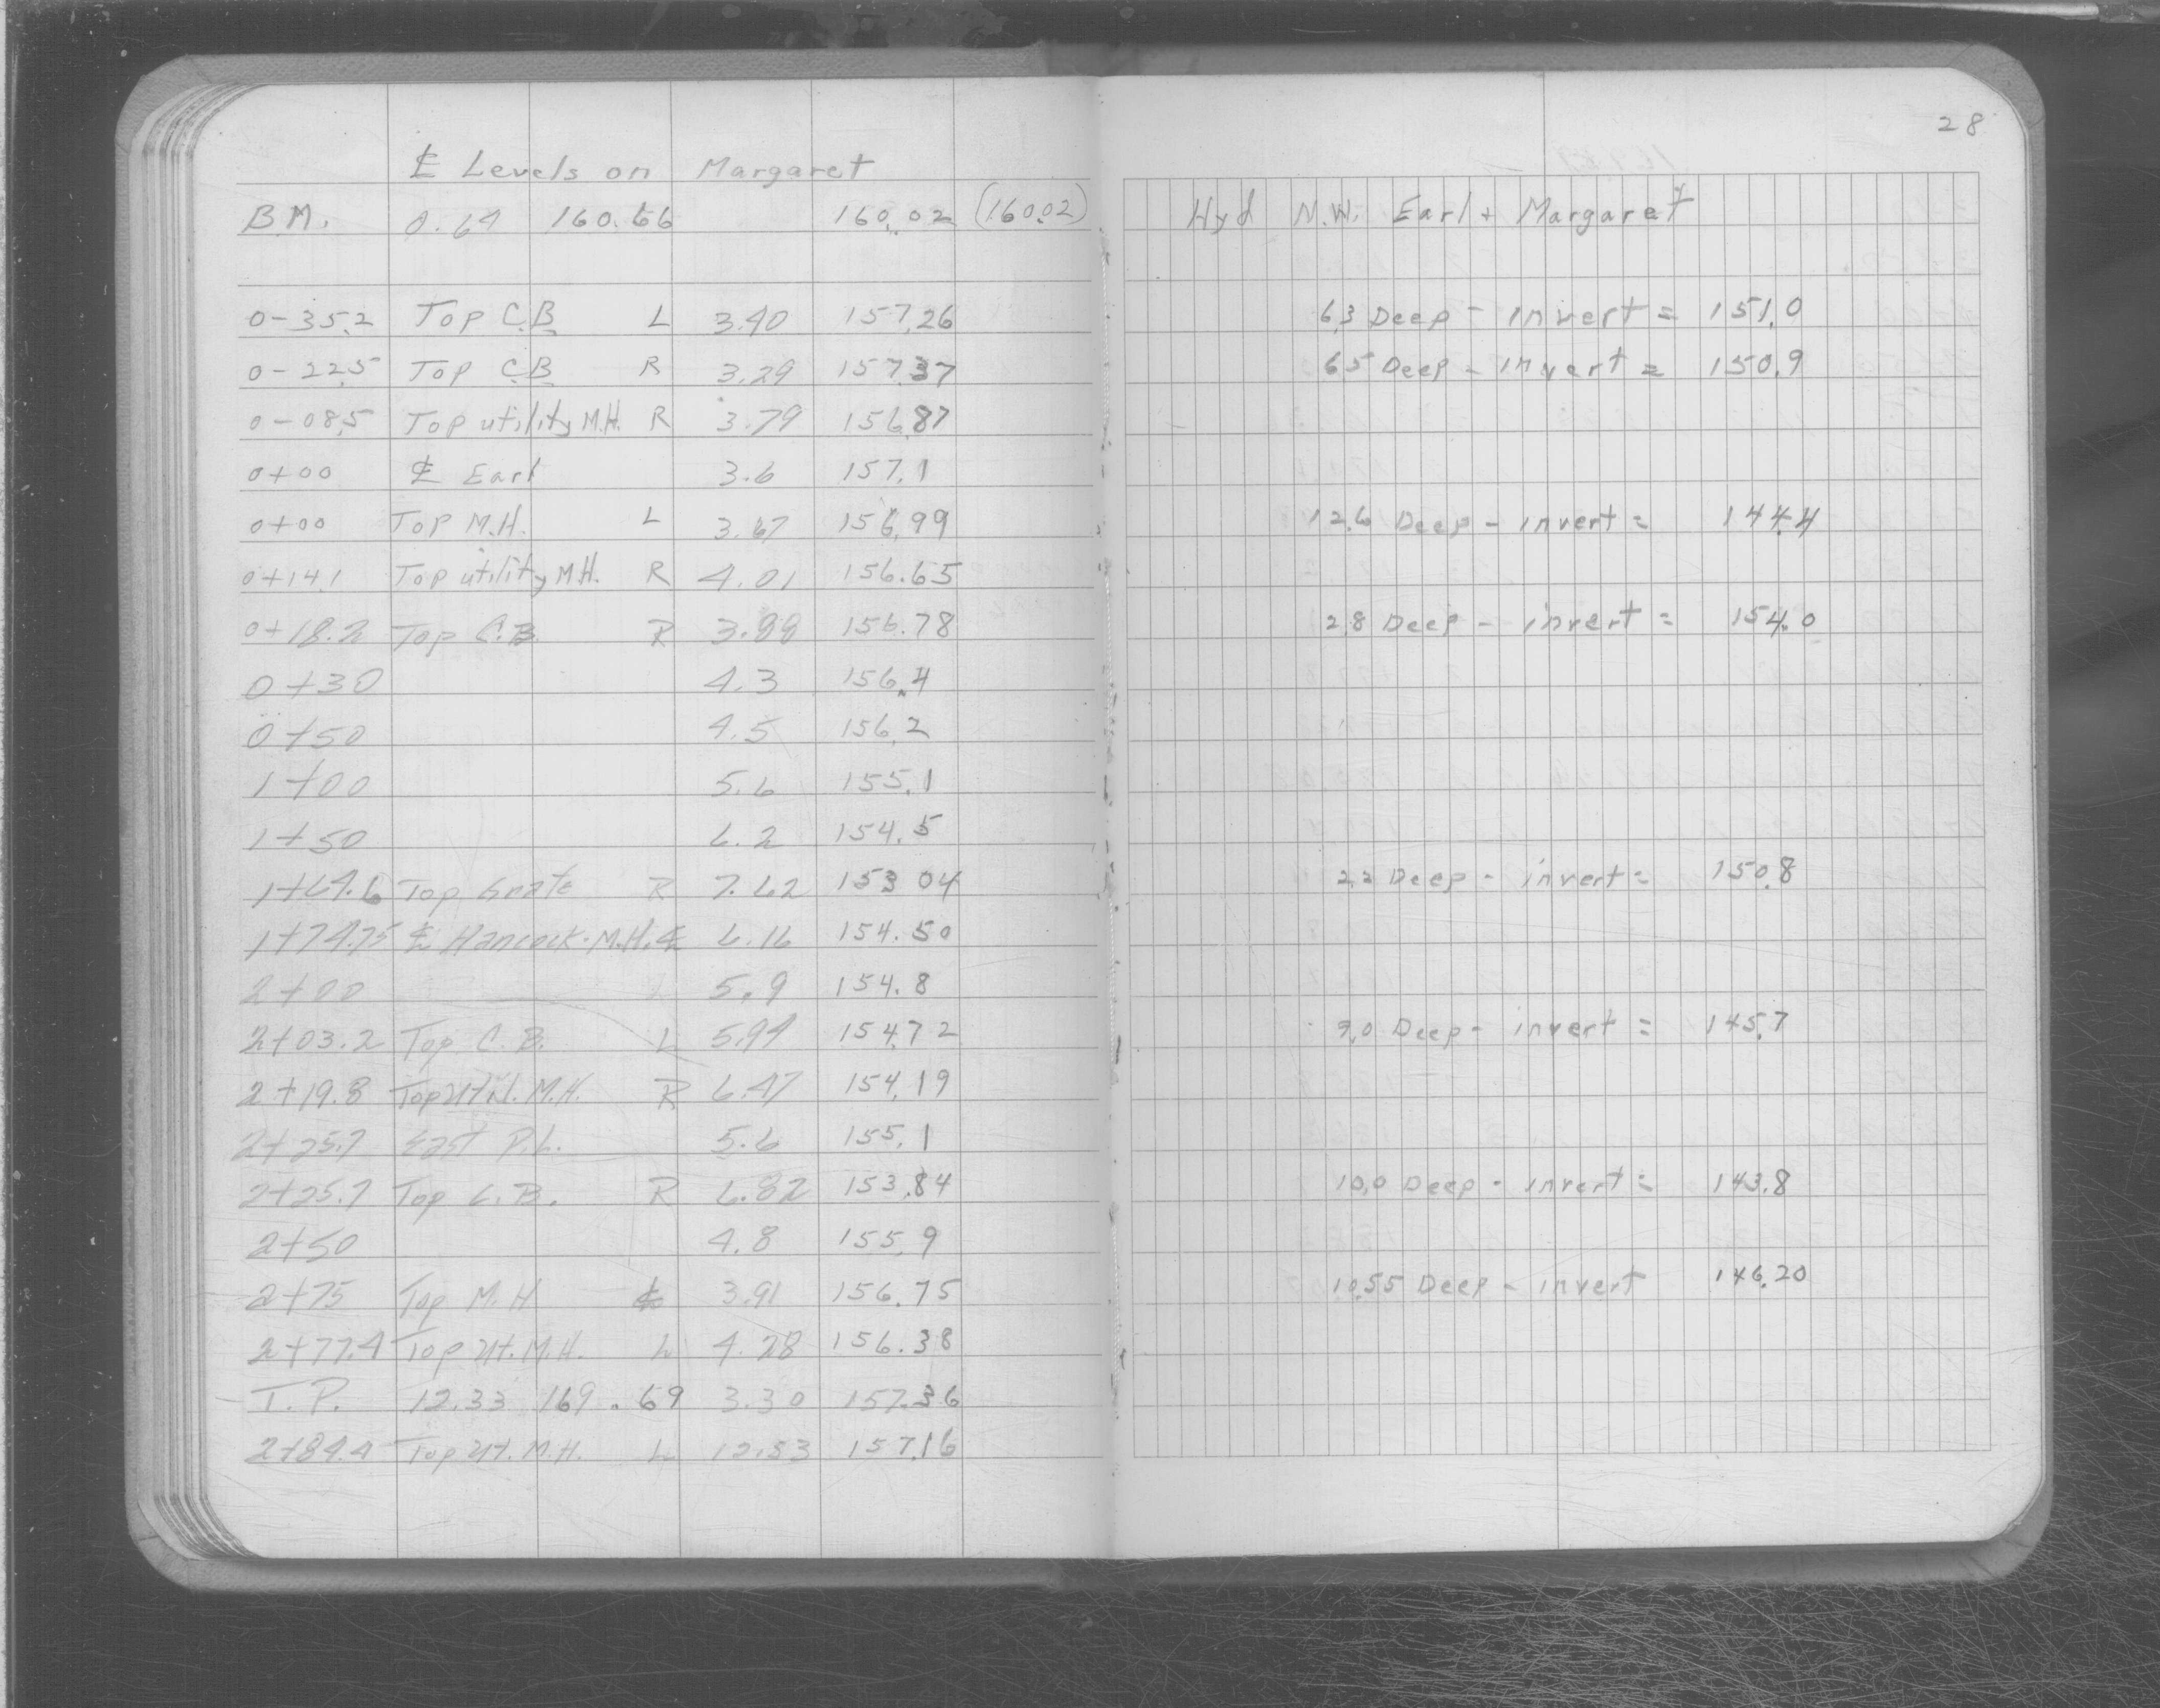 28
℄ Levels on Margaret
B.M. 0.64 160.66 160.02 (160.02) Hyd N.W. Earl + Margaret
0-35.2 Top C.B L 3.40 157.26 6.3 Deep - invert = 151.0
0-22.5 Top C.B R 3.29 157.37 6.5 Deep - invert = 150.9
0-08.5 Top utility M.H. R 3.79 156.87
0+00 ℄ Earl 3.6 157.1
0+00 Top M.H. L 3.67 156.99 12.6 Deep - invert = 144.4
0+14.1 Top utility M.H. R 4.01 156.65
0+18.2 Top C.B. R 3.88 156.78 2.8 Deep - invert = 154.0
0+30 4.3 156.4
0+50 4.5 156.2
1+00 5.6 155.1
1+50 6.2 154.5
1+64.6 Top Grate R 7.62 153.04 2.2 Deep - invert = 150.8
1+74.75 ℄ Hancock - M.H. ℄ 6.16 154.50
2+00 5.9 154.8
2+03.2 Top C.B. L 5.94 154.72 9.0 Deep - invert = 145.7
2+19.8 Top Util. M.H. R 6.47 154.19
2+25.7 East P.L. 5.6 155.1
2+25.7 Top C.B. R 6.82 153.84 10.0 Deep - invert = 143.8
2+50 4.8 155.9
2+75 Top M.H ℄ 3.91 156.75 10.55 Deep - invert 146.20
2+77.4 Top Ut. M.H. L 4.28 156.38
T.P. 12.33 169.69 3.30 157.36
2+84.4 Top Ut. M.H. L 12.53 157.16